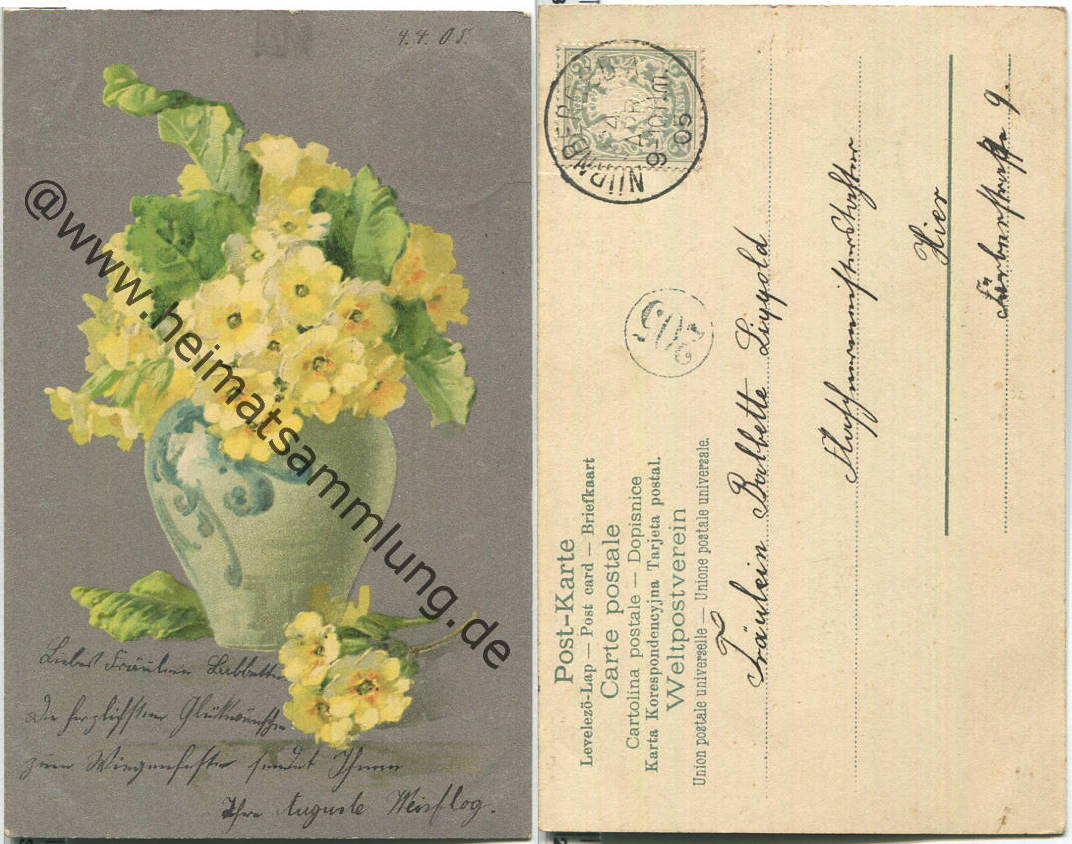 4.4.05.
@www.heimatsammlung.de
Liebes Fräulein Babbette
Die herzlichsten Glückwünsche
zum Wiegenfeste sendet Ihnen
Ihre Auguste Weisflog.
NÜRNBERG
4 APR
9-10 Vm
05
Post-Karte
Levelező-Lap — Post card — Briefkaart
Carte postale
Cartolina postale — Dopisnice
Karta Korespondencyjna Tarjeta postal.
Weltpostverein
Union postale universelle — Unione postale universale.
Fräulein Babbette Lippold
Hier
Färberstraße 9.